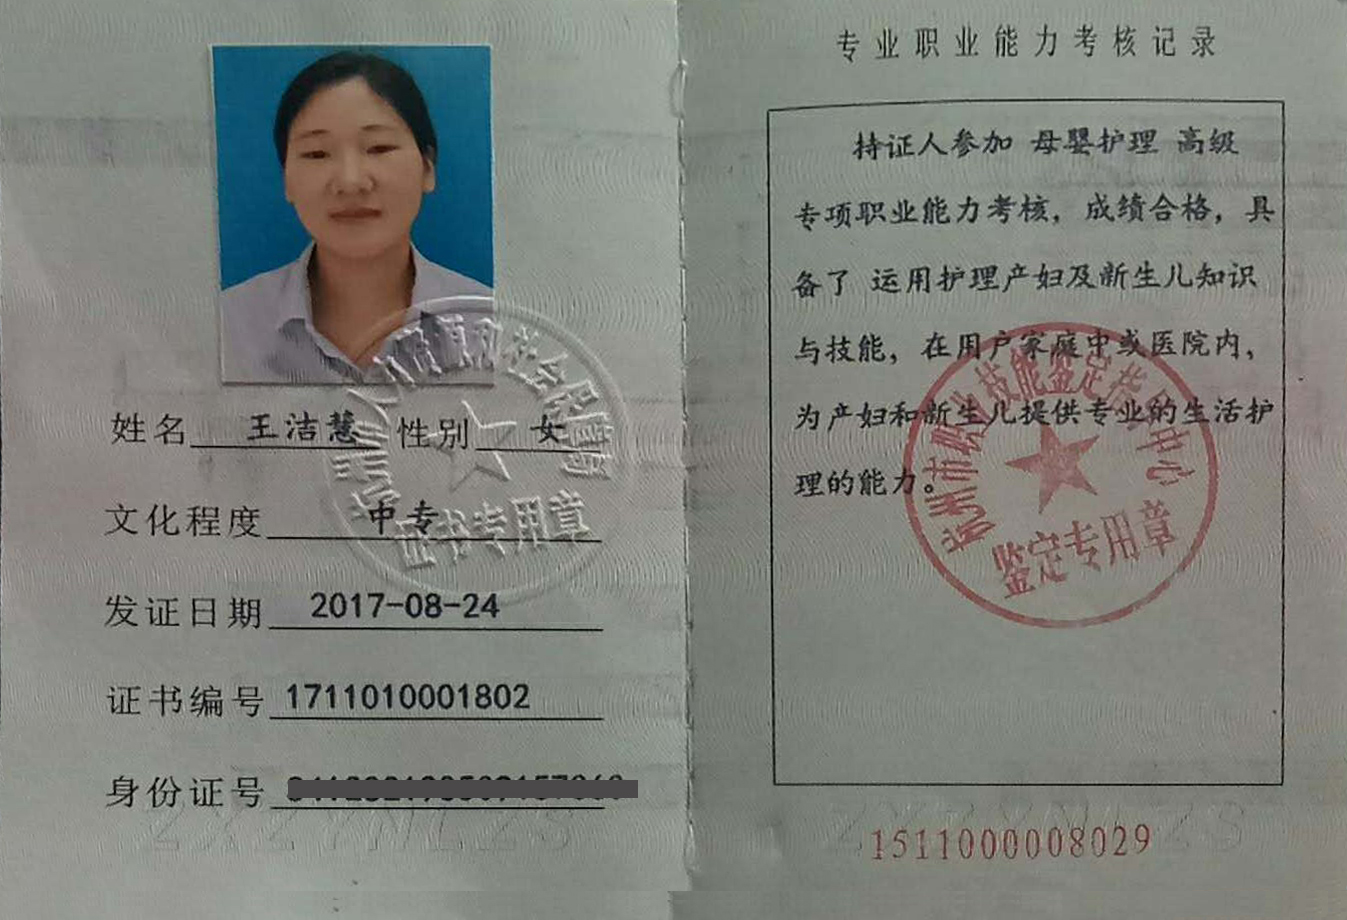 姓名 王洁慧 性别 女
文化程度 中专
发证日期 2017-08-24
证书编号 1711010001802
身份证号
证书专用章
ZXZYNLZS
专业职业能力考核记录
持证人参加 母婴护理 高级
专项职业能力考核，成绩合格，具
备了 运用护理产妇及新生儿知识
与技能，在用户家庭中或医院内，
为产妇和新生儿提供专业的生活护
理的能力。
鉴定专用章
1511000008029
ZXZYNLZS